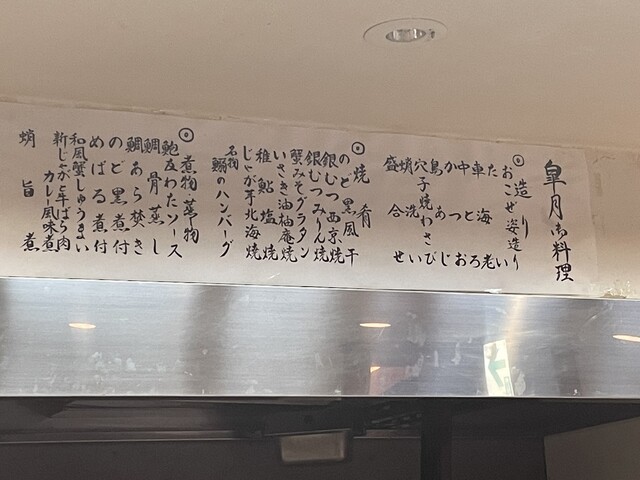 皐月御料理
◎造り
おこぜ姿造り
たい
車海老
中とろ
かつお
島あじ
穴子焼わさび
蛸洗い
盛合せ
◎焼肴
のど黒風干
銀むつ西京焼
銀むつみりん焼
蟹みそグラタン
いさき油柚庵焼
稚鮎塩焼
じゃが芋北海焼
名物
鰯のハンバーグ
◎煮物・蒸物
鮑友わたソース
鯛骨蒸し
鯛あら焚き
のど黒煮付
めばる煮付
和風蟹しゅうまい
新じゃがと牛ばら肉
カレー風味煮
蛸旨煮